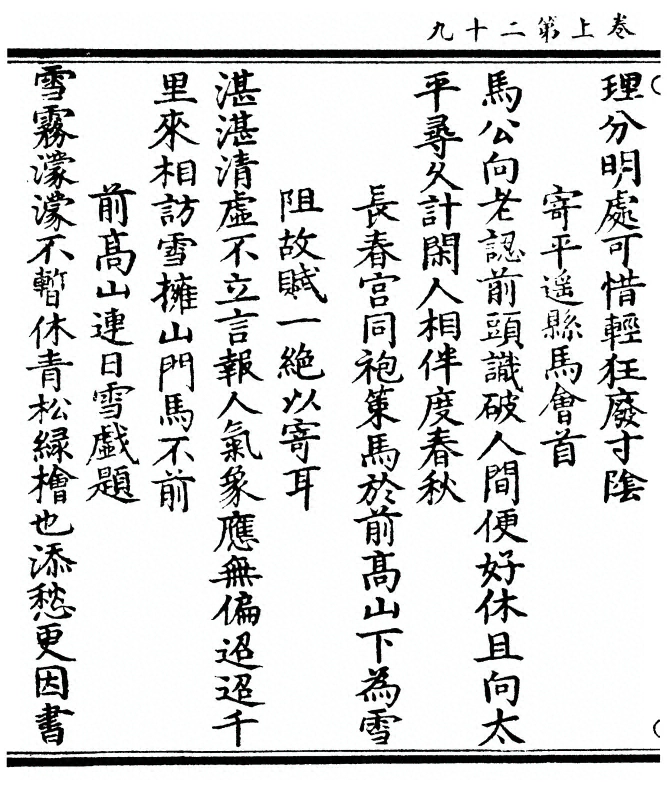 卷上第二十九
理分明處可惜輕狂廢寸陰
寄平遥縣馬會首
馬公向老認前頭識破人間便好休且向太
平尋久計閑人相伴度春秋
長春宮同袍策馬於前高山下為雪
阻故賦一絶以寄耳
湛湛清虛不立言報人氣象應無偏迢迢千
里來相訪雪擁山門馬不前
前高山連日雪戱題
雪霧濛濛不暫休青松緑檜也添愁更因書